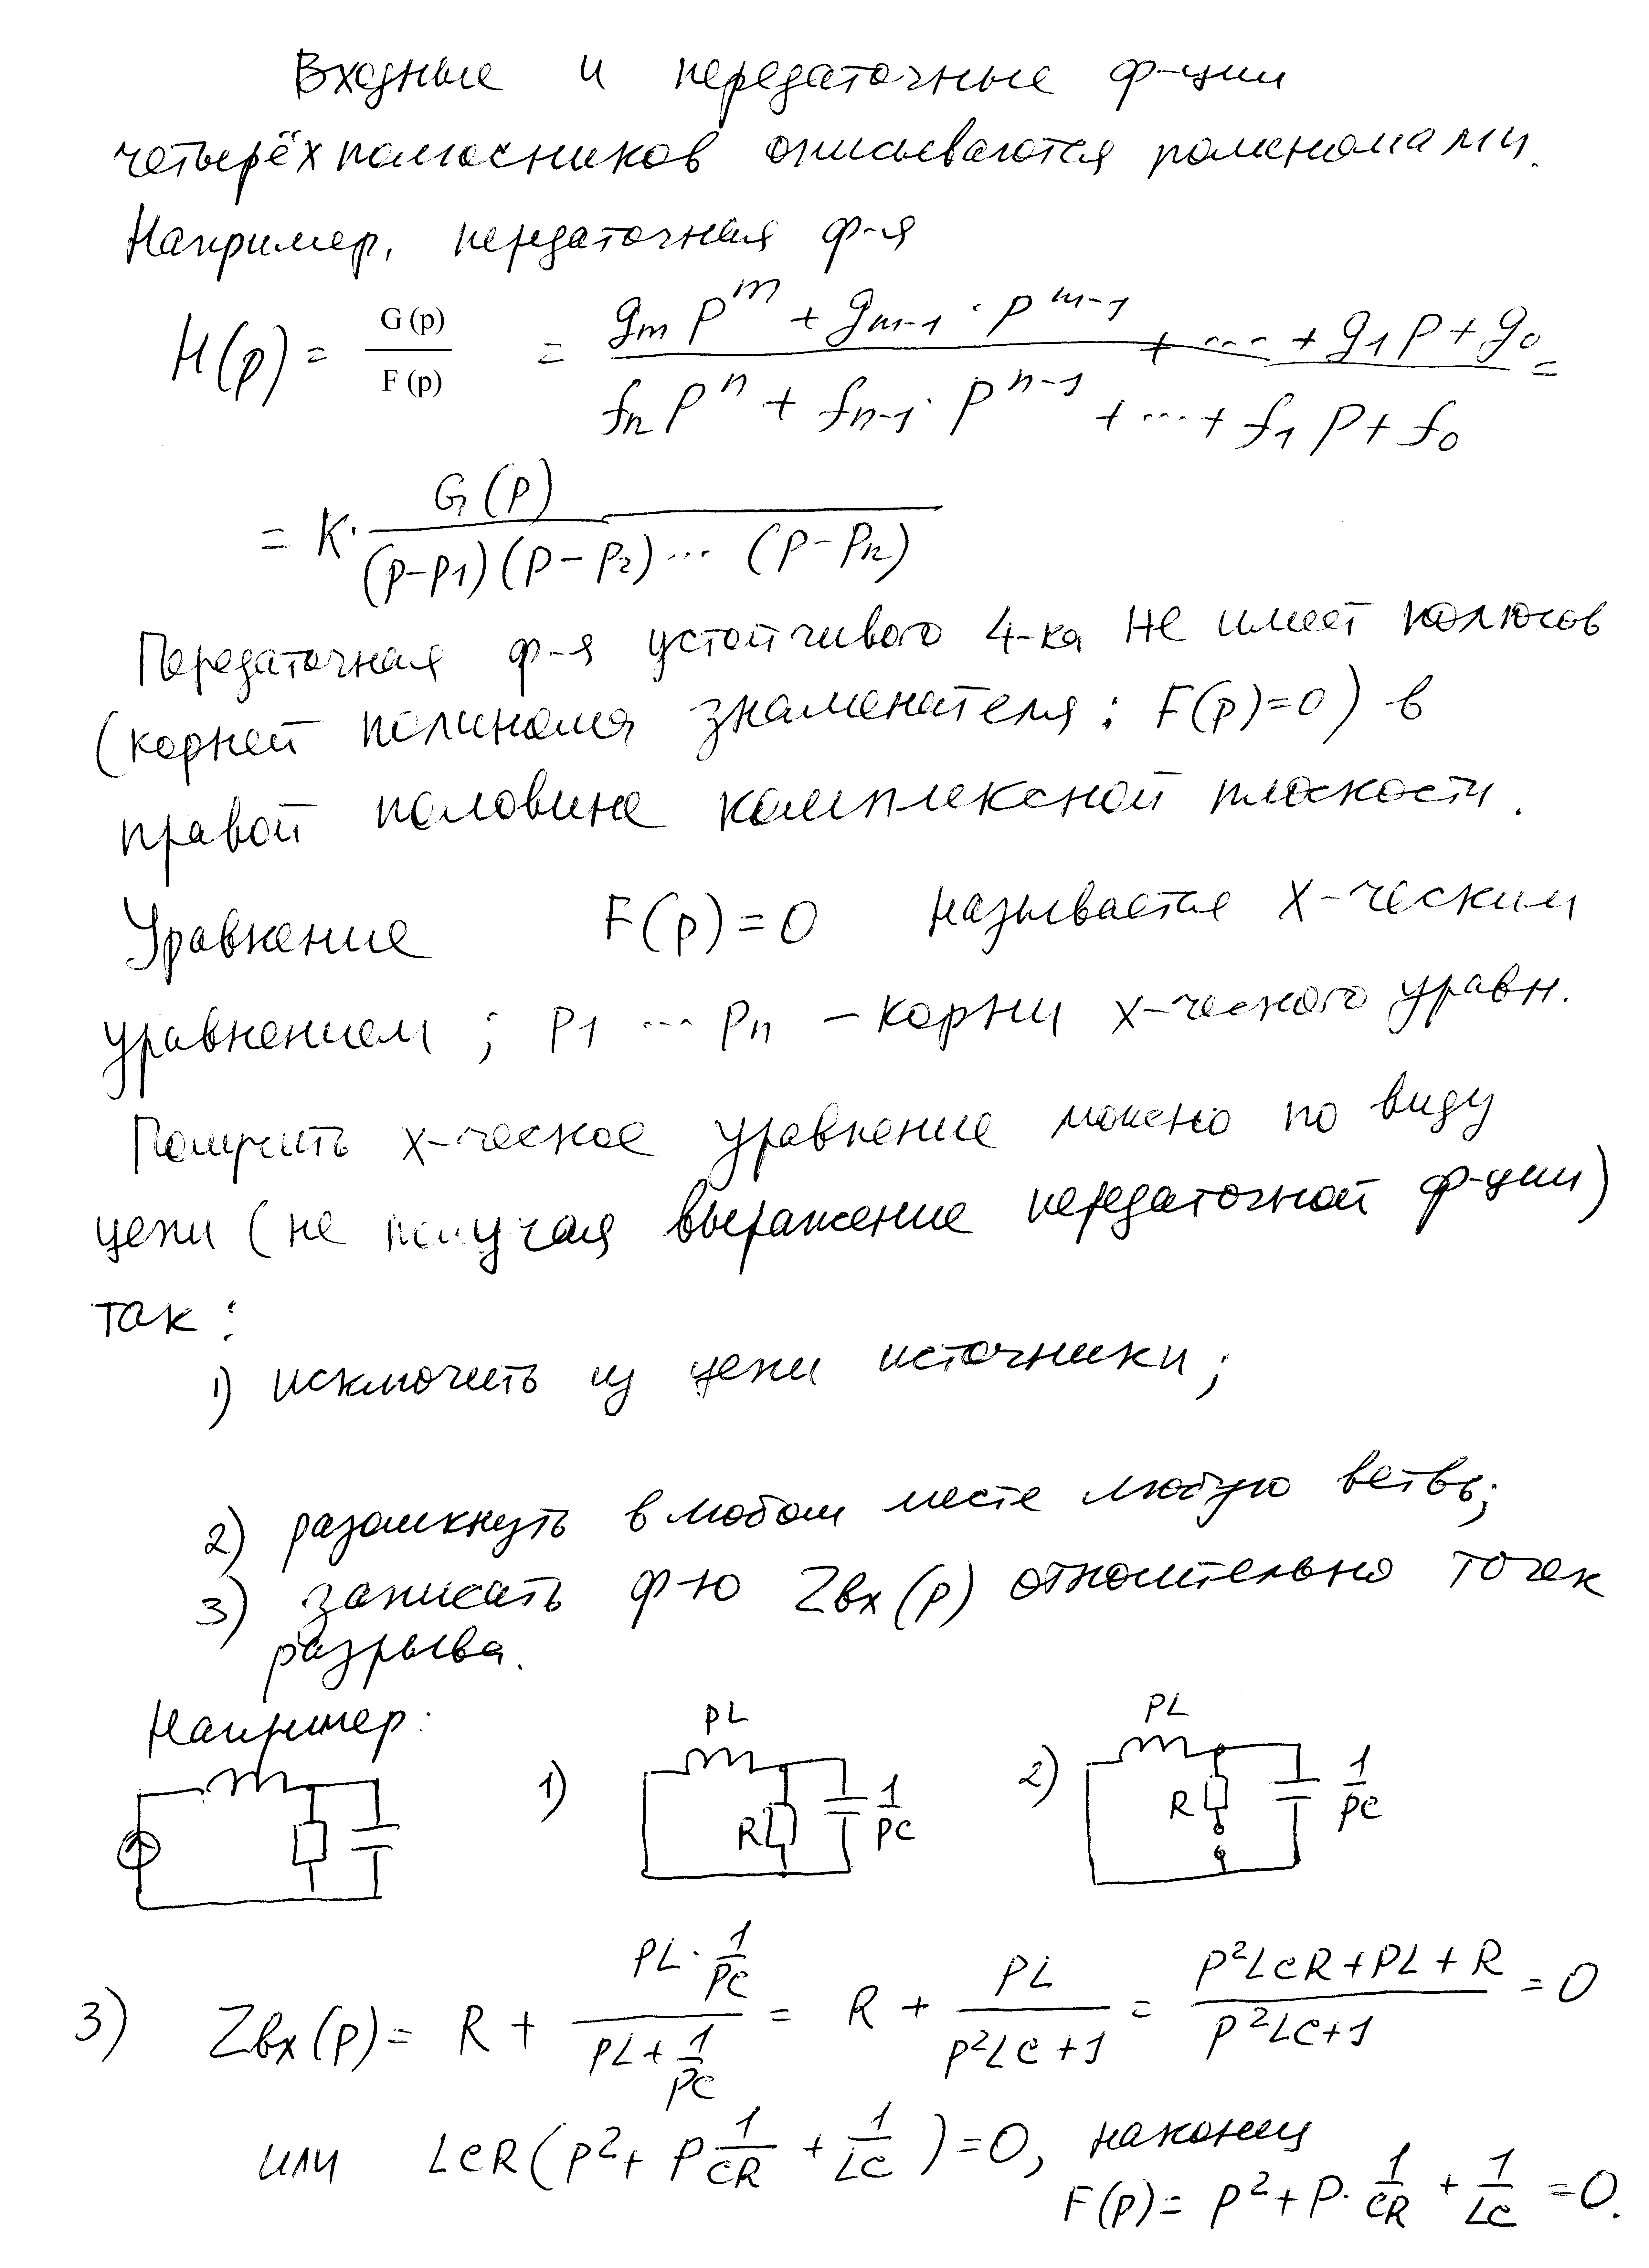 Входные и передаточные ф-ции
четырёхполюсников описываются полиномами.
Например, передаточная ф-я
H(p) = G(p)/F(p) = (gₘ pᵐ + gₘ₋₁ · pᵐ⁻¹ + ... + g₁p + g₀)/(fₙ pⁿ + fₙ₋₁ · pⁿ⁻¹ + ... + f₁p + f₀) =
= K · G(p)/((p-p₁)(p-p₂)...(p-pₙ))
Передаточная ф-я устойчивого 4-ка не имеет полюсов
(корней полинома знаменателя: F(p)=0) в
правой половине комплексной плоскости.
Уравнение F(p)=0 называется х-ческим
уравнением; p₁ ... pₙ – корни х-ческого уравн.
Получить х-ческое уравнение можно по виду
цепи (не получая выражение передаточной ф-ции)
так:
1) исключить из цепи источники;
2) разомкнуть в любом месте любую ветвь;
3) записать ф-ю Zвх(p) относительно точек
разрыва.
Например:
1) pL R 1/pC
2) pL R 1/pC
3) Zвх(p) = R + (pL · 1/pC)/(pL + 1/pC) = R + pL/(p²LC+1) = (p²LCR+pL+R)/(p²LC+1) = 0
или LCR(p² + p 1/CR + 1/LC) = 0, наконец
F(p) = p² + p · 1/CR + 1/LC = 0.